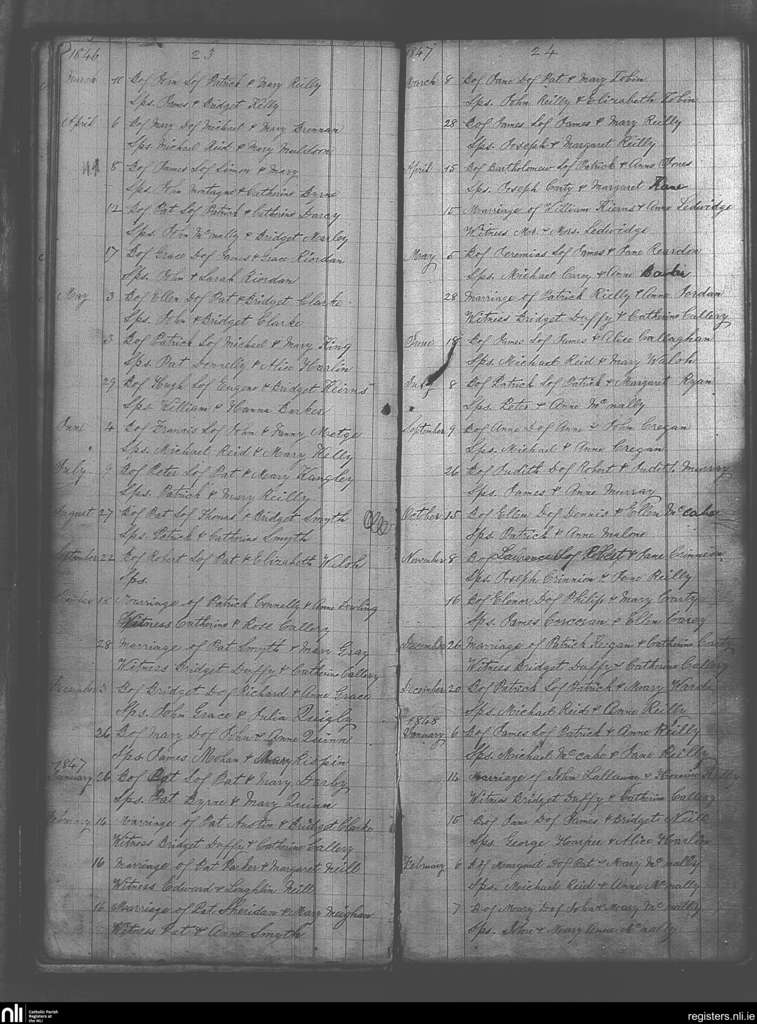 1846 23
March 10 Bof John Sof Patrick & Mary Reilly
Sps. James & Bridget Kelly
April 6 Bof Mary Dof Michael & Mary Brennan
Sps. Michael Reid & Mary Muldoon
8 Bof James Sof Simon & Mary
Sps. John & Catherine Byrne
12 Bof Pat Sof Patrick & Catherine Darcy
Sps. John McNally & Bridget Marley
17 Bof Grace Dof James & Grace Riordan
Sps. John & Sarah Riordan
May 3 Bof Ellen Dof Pat & Bridget Clarke
Sps. John & Bridget Clarke
3 Bof Patrick Sof Michael & Mary King
Sps. Pat Donnelly & Alice Harlin
29 Bof Hugh Sof Eugene & Bridget Kierns
Sps. William & Hanna Barker
June 4 Bof Francis Sof John & Fanny Metge
Sps. Michael Reid & Mary Kelly
July 9 Bof Peter Sof Pat & Mary Langley
Sps. Patrick & Mary Reilly
August 27 Bof Pat Sof Thomas & Bridget Smyth
Sps. Patrick & Catherine Smyth
September 22 Bof Robert Sof Pat & Elizabeth Welsh
Sps.
October 15 Marriage of Patrick Connelly & Anne Dowling
Witness Catherine & Rose Callery
28 Marriage of Pat Smyth & Mary Gray
Witness Bridget Duffy & Catherine Callery
December 3 Bof Bridget Dof Richard & Anne Grace
Sps. John Grace & Julia Quigly
26 Bof Mary Dof John & Anne Quinn
Sps. James Mohan & Mary Crispin
1847
January 26 Bof Pat Sof Pat & Mary Darby
Sps. Pat Byrne & Mary Quinn
February 14 Marriage of Pat Austin & Bridget Clarke
Witness Bridget Duffy & Catherine Callery
16 Marriage of Pat Parker & Margaret Neill
Witness Edward & Loughlin Neill
16 Marriage of Pat Sheridan & Mary Meighan
Witness Pat & Anne Smyth
1847 24
March 8 Bof Jane Dof Pat & Mary Tobin
Sps. John Reilly & Elizabeth Tobin
28 Bof James Sof James & Mary Reilly
Sps. Joseph & Margaret Reilly
April 15 Bof Bartholomew Sof Patrick & Anne Jones
Sps. Joseph Carty & Margaret Kane
15 Marriage of William Kierns & Anne Ledwidge
Witness Mr. & Mrs. Ledwidge
May 5 Bof Jeremias Sof James & Jane Rearden
Sps. Michael Carey & Anne
28 Marriage of Patrick Rielly & Anne Jordan
Witness Bridget Duffy & Catherine Callery
June 18 Bof James Sof James & Alice Callaghan
Sps. Michael Reid & Mary Walsh
July 8 Bof Patrick Sof Patrick & Margaret Ryan
Sps. Peter & Anne McNally
September 9 Bof Anne Dof Anne & John Cregan
Sps. Michael & Anne Cregan
26 Bof Judith Dof Robert & Judith Murray
Sps. James & Anne Murray
October 15 Bof Ellen Dof Dennis & Ellen McCabe
Sps. Patrick & Anne Malone
November 8 Bof Lawrence Sof Robert & Jane Crinnion
Sps. Joseph Crinnion & Jane Reilly
16 Bof Elenor Dof Philip & Mary Carty
Sps. James Corcoran & Ellen Carey
December 26 Marriage of Patrick Keegan & Catherine Carty
Witness Bridget Duffy & Catherine Callery
December 20 Bof Patrick Sof Patrick & Mary Warde
Sps. Michael Reid & Anne Reilly
1848
January 6 Bof James Sof Patrick & Anne Reilly
Sps. Michael McCabe & Jane Reilly
14 Marriage of John Lallawn & Reilly
Witness Bridget Duffy & Catherine Callery
15 Bof Jane Dof James & Bridget Neill
Sps. George & Alice Harlin
February 6 Bof Margaret Dof Pat & Mary McNally
Sps. Michael Reid & Anne McNally
7 Bof Mary Dof John & Mary McNally
Sps. John & Mary Anne McNally
nli
Catholic Parish
Registers at
the NLI
registers.nli.ie